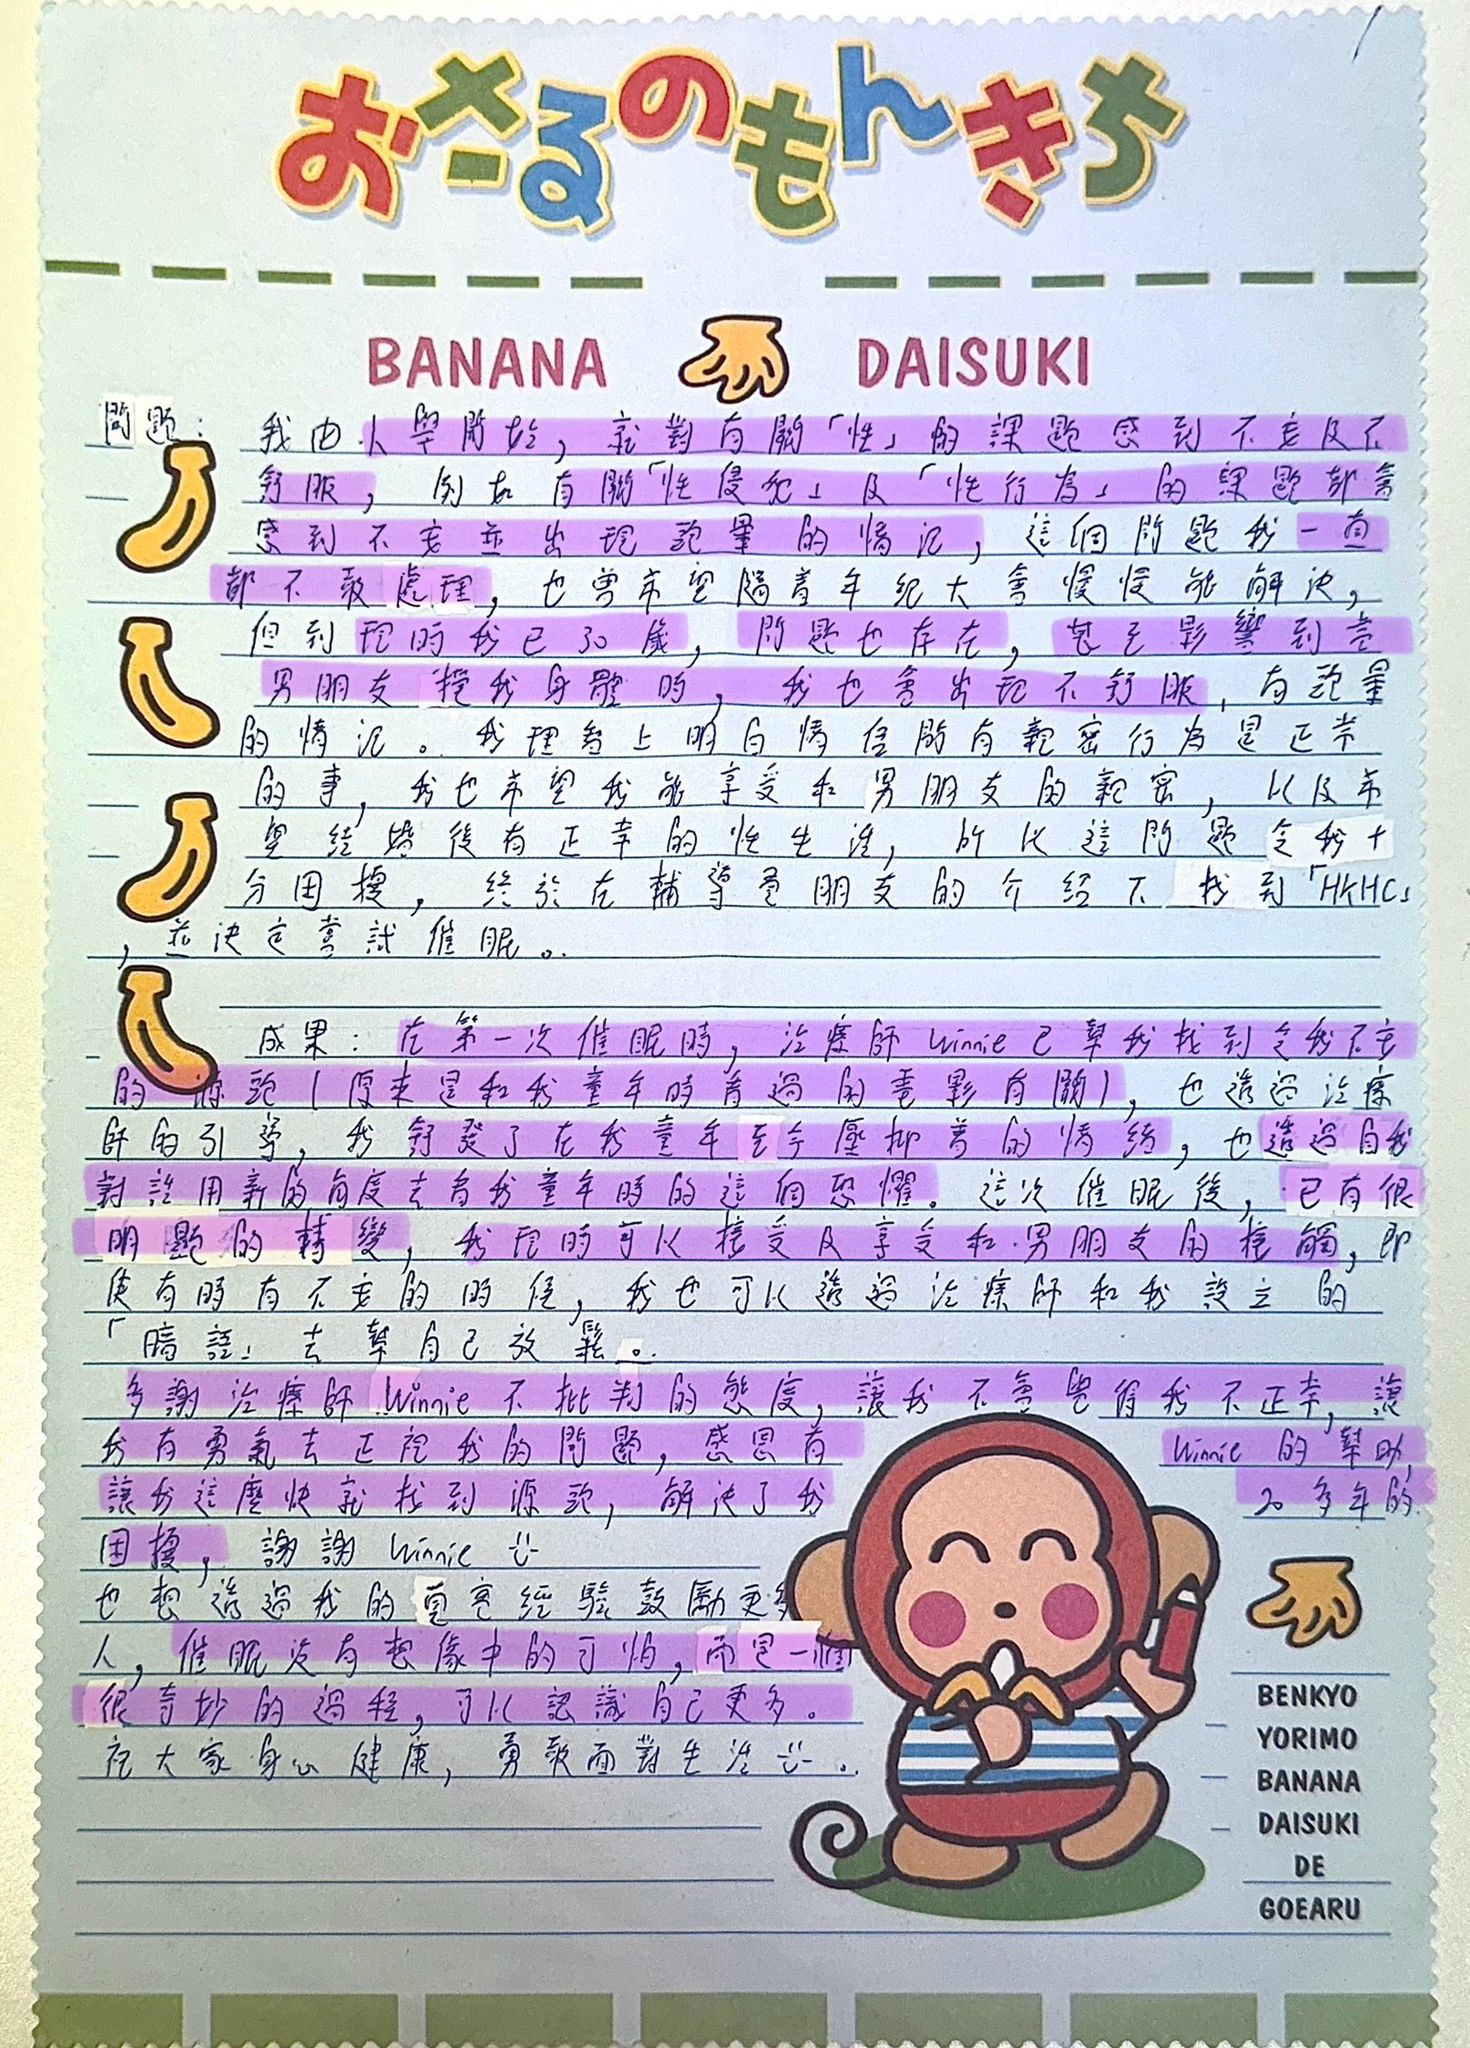 おさるのもんきち
BANANA DAISUKI
問題: 我由小學開始,就對有關「性」的課題感到不安及不
舒服,例如有關「性侵犯」及「性行為」的課題都會
感到不安並出現頭暈的情況,這個問題我一直
都不敢處理,也曾希望隨着年紀大會慢慢能解決,
但到現時我已30歲,問題也存在,甚至影響到當
男朋友掂我身體時,我也會出現不舒服,有頭暈
的情況。我理智上明白情侶間有親密行為是正常
的事,我也希望我能享受和男朋友的親密,以及希
望結婚後有正常的性生活,所以這問題令我十
分困擾,終於在輔導員朋友的介紹下找到「HKHC」
,並決定嘗試催眠。
成果: 在第一次催眠時,治療師Winnie已幫我找到令我不安
的源頭(原來是和我童年時看過的電影有關),也透過治療
師的引導,我舒發了在我童年至今壓抑着的情緒,也透過自我
對話用新的角度去看我童年時的這個恐懼。這次催眠後,已有很
明顯的轉變,我現時可以接受及享受和男朋友的接觸,即
使有時有不安的時侯,我也可以透過治療師和我設立的
「暗語」去幫自己放鬆。
多謝治療師Winnie不批判的態度,讓我不會覺得我不正常,讓
我有勇氣去正視我的問題,感恩有Winnie的幫助,
讓我這麼快就找到源頭,解決了我20多年的
困擾,謝謝Winnie
也想透過我的真實經驗鼓勵更多
人,催眠沒有想像中的可怕,而是一個
很奇妙的過程,可以認識自己更多。
祝大家身心健康,勇敢面對生活。
BENKYO
YORIMO
BANANA
DAISUKI
DE
GOEARU